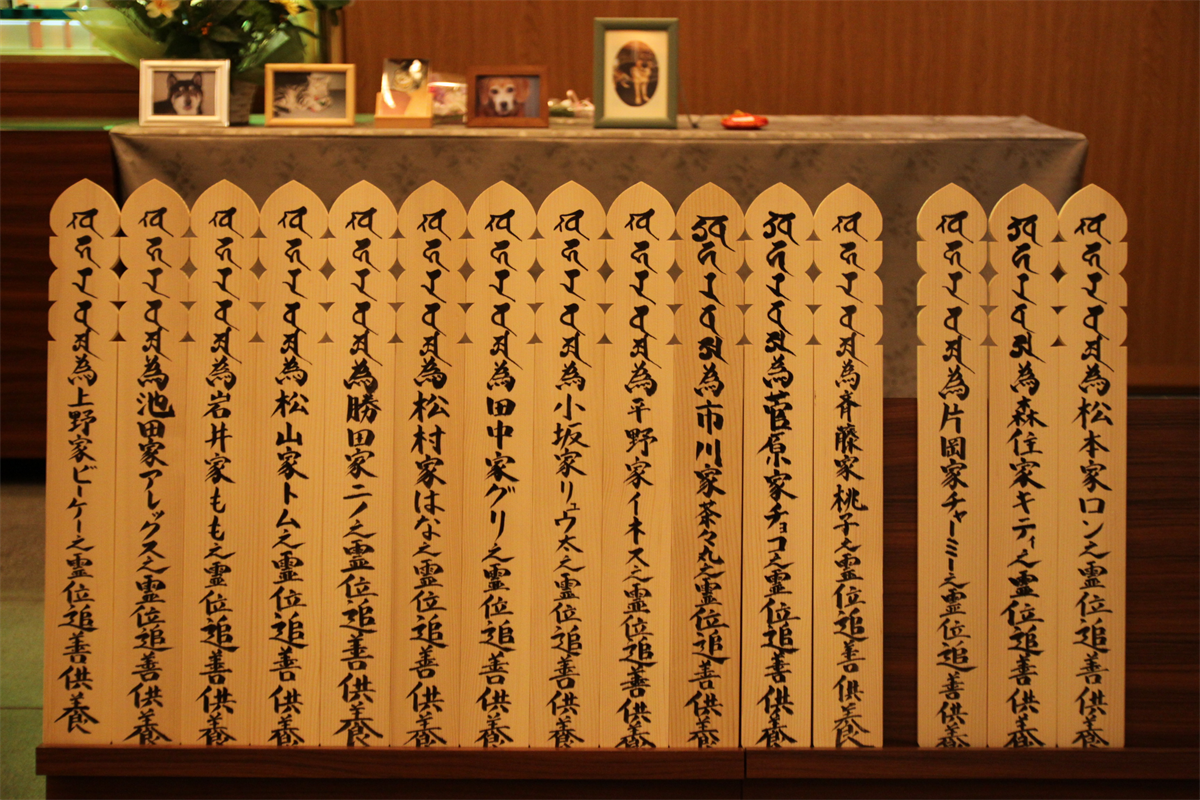 為松本家ロン之霊位追善供養
為森住家キティ之霊位追善供養
為片岡家チャーミー之霊位追善供養
為斉藤家桃子之霊位追善供養
為菅原家チョコ之霊位追善供養
為市川家茶々丸之霊位追善供養
為平野家イーネス之霊位追善供養
為小坂家リュウ太之霊位追善供養
為田中家グリ之霊位追善供養
為松村家はな之霊位追善供養
為勝田家ニノ之霊位追善供養
為松山家トム之霊位追善供養
為岩井家もも之霊位追善供養
為池田家アレッグス之霊位追善供養
為上野家ビーケー之霊位追善供養